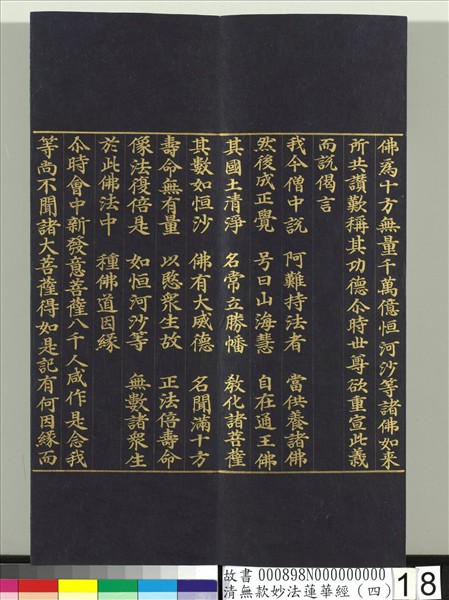 佛為十方無量千萬億恒河沙等諸佛如来
所共讚歎稱其功德尒時世尊欲重宣此義
而說偈言
我今僧中說　阿難持法者　當供養諸佛
然後成正覺　号曰山海慧　自在通王佛
其國土清淨　名常立勝幡　教化諸菩薩
其數如恒沙　佛有大威德　名聞滿十方
壽命無有量　以愍衆生故　正法倍壽命
像法復倍是　如恒河沙等　無數諸衆生
於此佛法中　種佛道因緣
尒時會中新發意菩薩八千人咸作是念我
等尚不聞諸大菩薩得如是記有何因緣而
故書 000898N000000000
清無款妙法蓮華經（四）
18